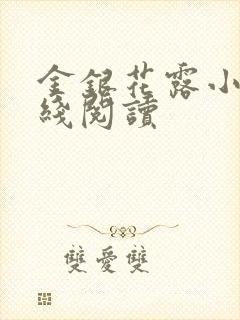 金銀花露小
綫閱讀
雙愛雙